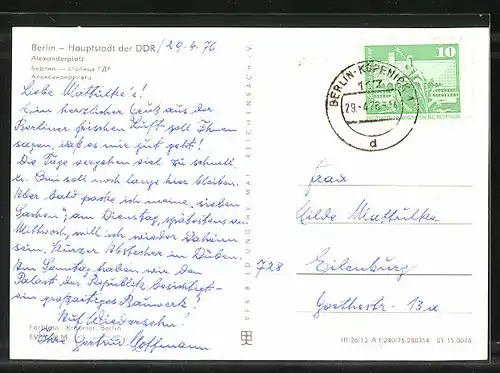 Berlin – Hauptstadt der DDR /29.4.76
Alexanderplatz
Берлин — столица ГДР
Александерплац
Liebe Mattulke's!
Ein herzlicher Gruß aus der
Berliner frischen Luft soll Ihnen
sagen, daß es mir gut geht!
Die Tage vergehen viel zu schnell,
u. Omi soll noch lange hier bleiben.
Aber bald packe ich meine „sieben
Sachen“; am Dienstag, spätestens am
Mittwoch, will ich wieder daheim
sein. Kurzer Abstecher in Düben.
Am Sonntag haben wir den
Palast der Republik besichtigt –
ein großartiges Bauwerk!
Auf Wiedersehn!
Ihre Gertrud Hoffmann
Farbfoto: Berlin
VEB BILD UND HEIMAT REICHENBACH I. V.
BERLIN-KÖPENICK 1
117
29.-4.76
d
10
Frau
Hilde Mattulke
728 Eilenburg
Goethestr. 13a
III/26/13 A 1/240/75 280314 01 15 0076